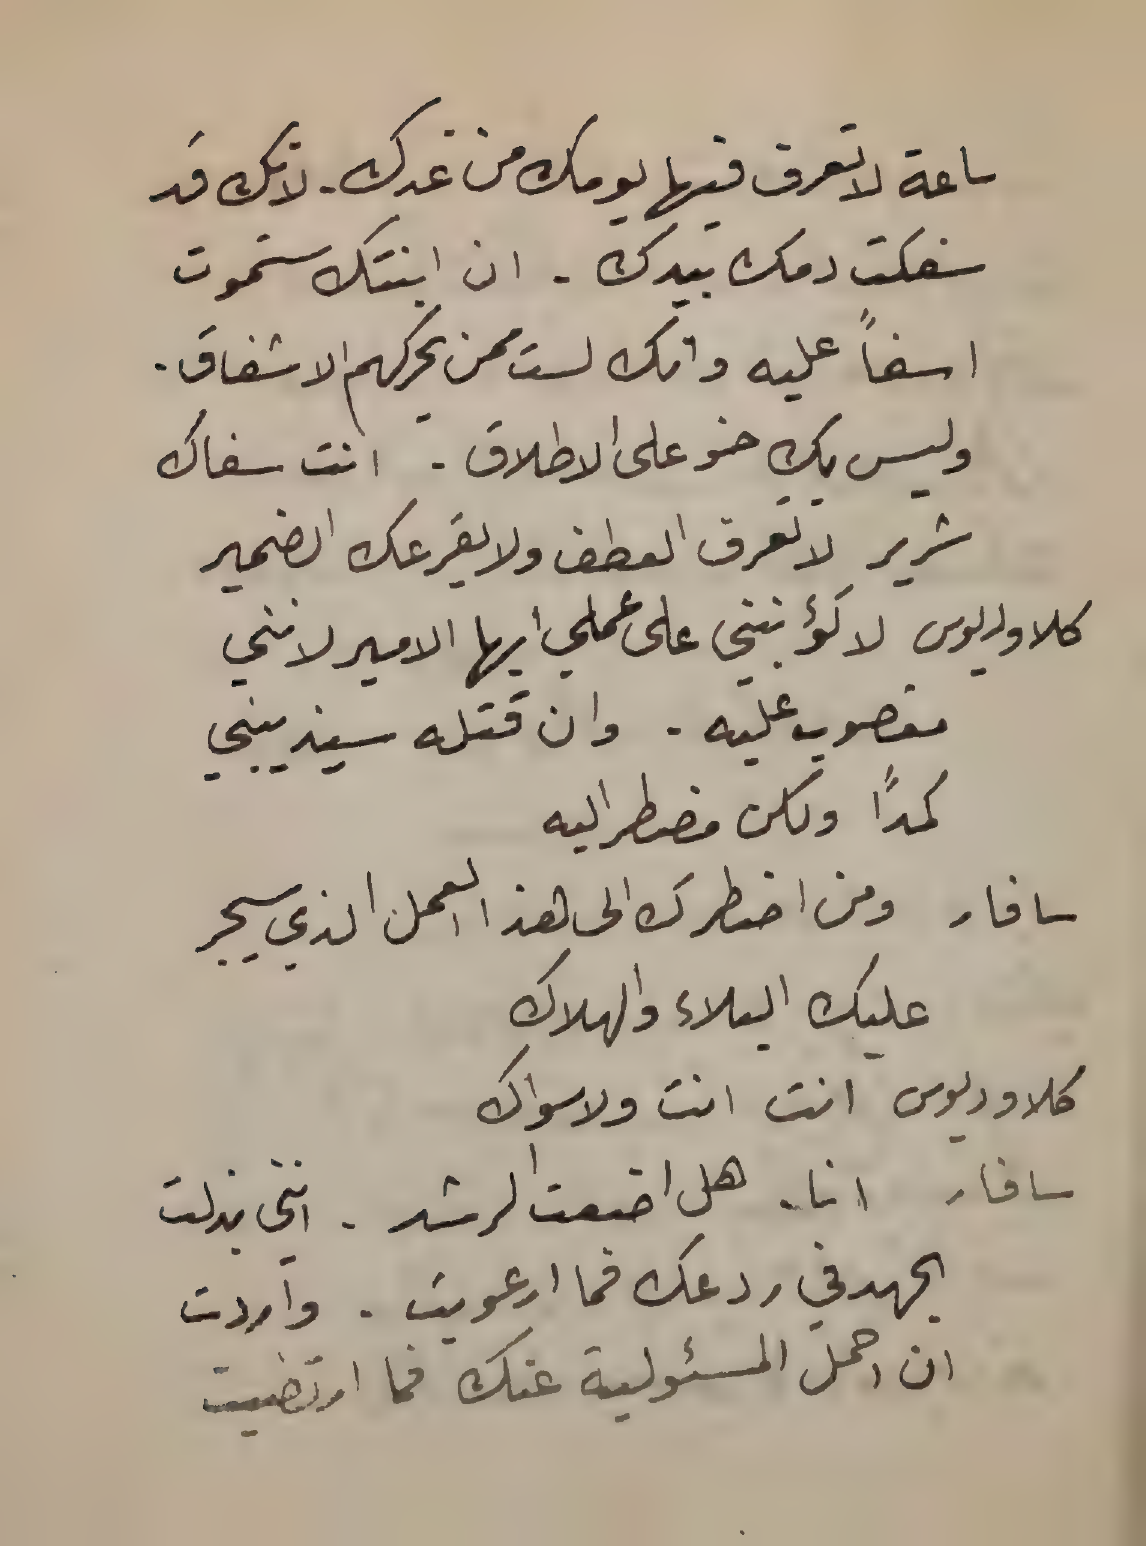 ساعة لا تعرف فيها يومك من غدك. لأنك قد
سفكت دمك بيدك. ان ابنتك ستموت
اسفاً عليه وانك لست ممن يحركهم الاشفاق.
وليس بك حنو على الاطلاق. انت سفاك
شرير لا تعرف العطف ولا يقرعك الضمير
كلاوديوس لا تؤنبني على عملي ايها الامير لانني
مغصوب عليه. وان قتله سيذيبني
كمدًا ولكن مضطر اليه
سافار ومن اضطرك الى هذا العمل الذي سيجر
عليك البلاء والهلاك
كلاوديوس انت انت ولا سواك
سافار انا. هل اضعت الرشد. انني بذلت
الجهد في ردعك فما ارعويت. واردت
ان احمل المسئولية عنك فما ارتضيت